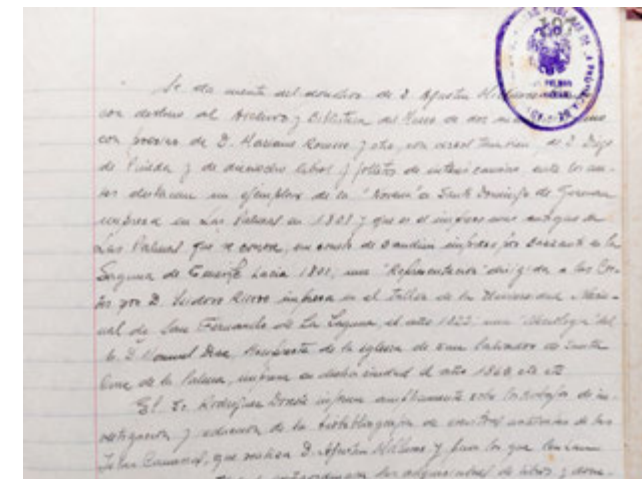 Se da cuenta del donativo de D. Agustín
con destino al Archivo y Biblioteca del Museo de dos
con poesías de D. Mariano Romero y otro, con de D. Diego
de Pineda y de diversos libros y folletos de interés canario, entre los cua-
les destacan un ejemplar de la "Novena" a Santo Domingo de Guzman
impresa en Las Palmas en 1801 y que es el impreso mas antiguo de
Las Palmas que se conoce, un de impreso por Bazzanti en la
Laguna de Tenerife hacia 1801, una "Representación" dirigida a las Cor-
tes por D. Isidoro Rivero impresa en el Taller de la Universidad Nacio-
nal de San Fernando de La Laguna, el año 1822; una "Necrología" del
D. Manuel Diaz, de la iglesia de San Salvador de Santa
Cruz de la Palma, impresa en dicha ciudad el año 1863 etc etc
El Sr. Rodríguez Doreste informa ampliamente sobre los trabajos de in-
vestigación y edición de la biobibliografía de escritores naturales de las
Islas Canarias, que realiza D. Agustín Millares y para los que
las adquisiciones de libros y